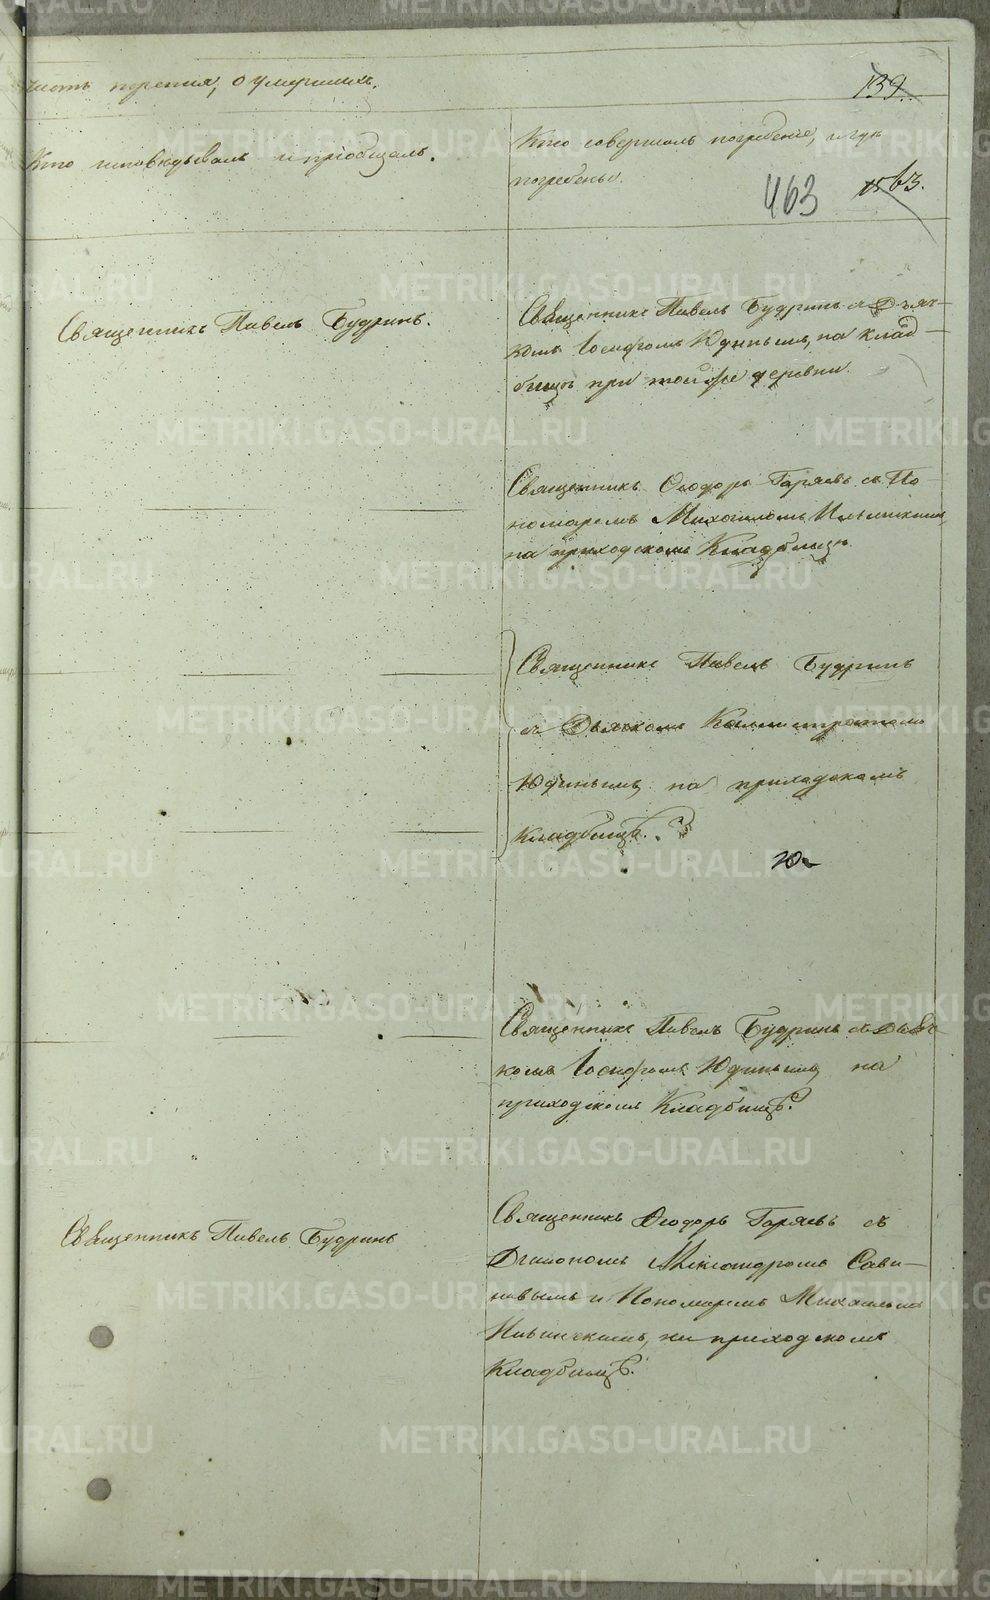 часть третія, о умершихъ.
139.
Кто исповѣдывалъ и пріобщалъ.
Кто совершалъ погребеніе, и гдѣ
погребены.
463
1563.
Священникъ Павелъ Будринъ.
Священникъ Павелъ Будринъ съ Дьяч-
комъ Іосифомъ Юдинымъ, на клад-
бищѣ при той же деревни.
Священникъ Ѳеодоръ Гаряевъ съ По-
номаремъ Михаиломъ
на приходскомъ Кладбищѣ.
Священникъ Павелъ Будринъ
съ Дьячкомъ Каллистратомъ
Юдинымъ, на приходскомъ
Кладбищѣ.
Ю
Священникъ Павелъ Будринъ съ Дьяч-
комъ Іосифомъ Юдинымъ, на
приходскомъ Кладбищѣ.
Священникъ Павелъ Будринъ
Священникъ Ѳеодоръ Гаряевъ съ
Діакономъ Александромъ Сави-
новымъ и Пономаремъ Михаиломъ
на приходскомъ
Кладбищѣ.
METRIKI.GASO-URAL.RU